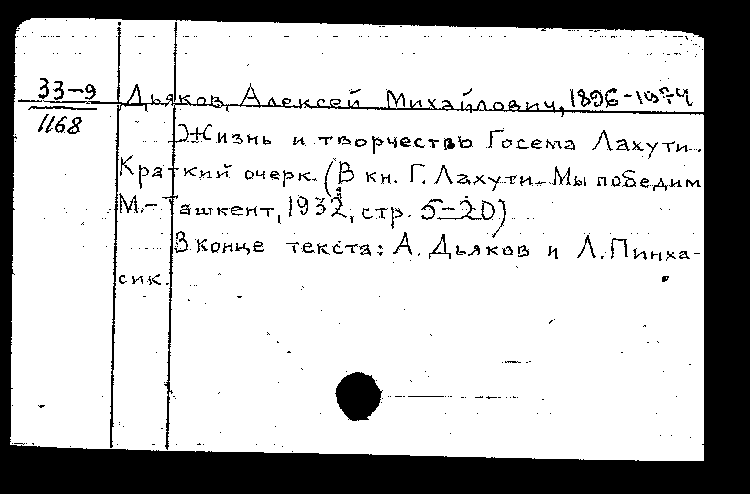 33-9 Дьяков, Алексей Михайлович, 1896-1974
1168
Жизнь и творчество Госема Лахути.
Краткий очерк. (В кн. Г. Лахути. Мы победим
М.-Ташкент, 1932, стр. 5-20)
В конце текста: А. Дьяков и Л. Пинха-
сик.